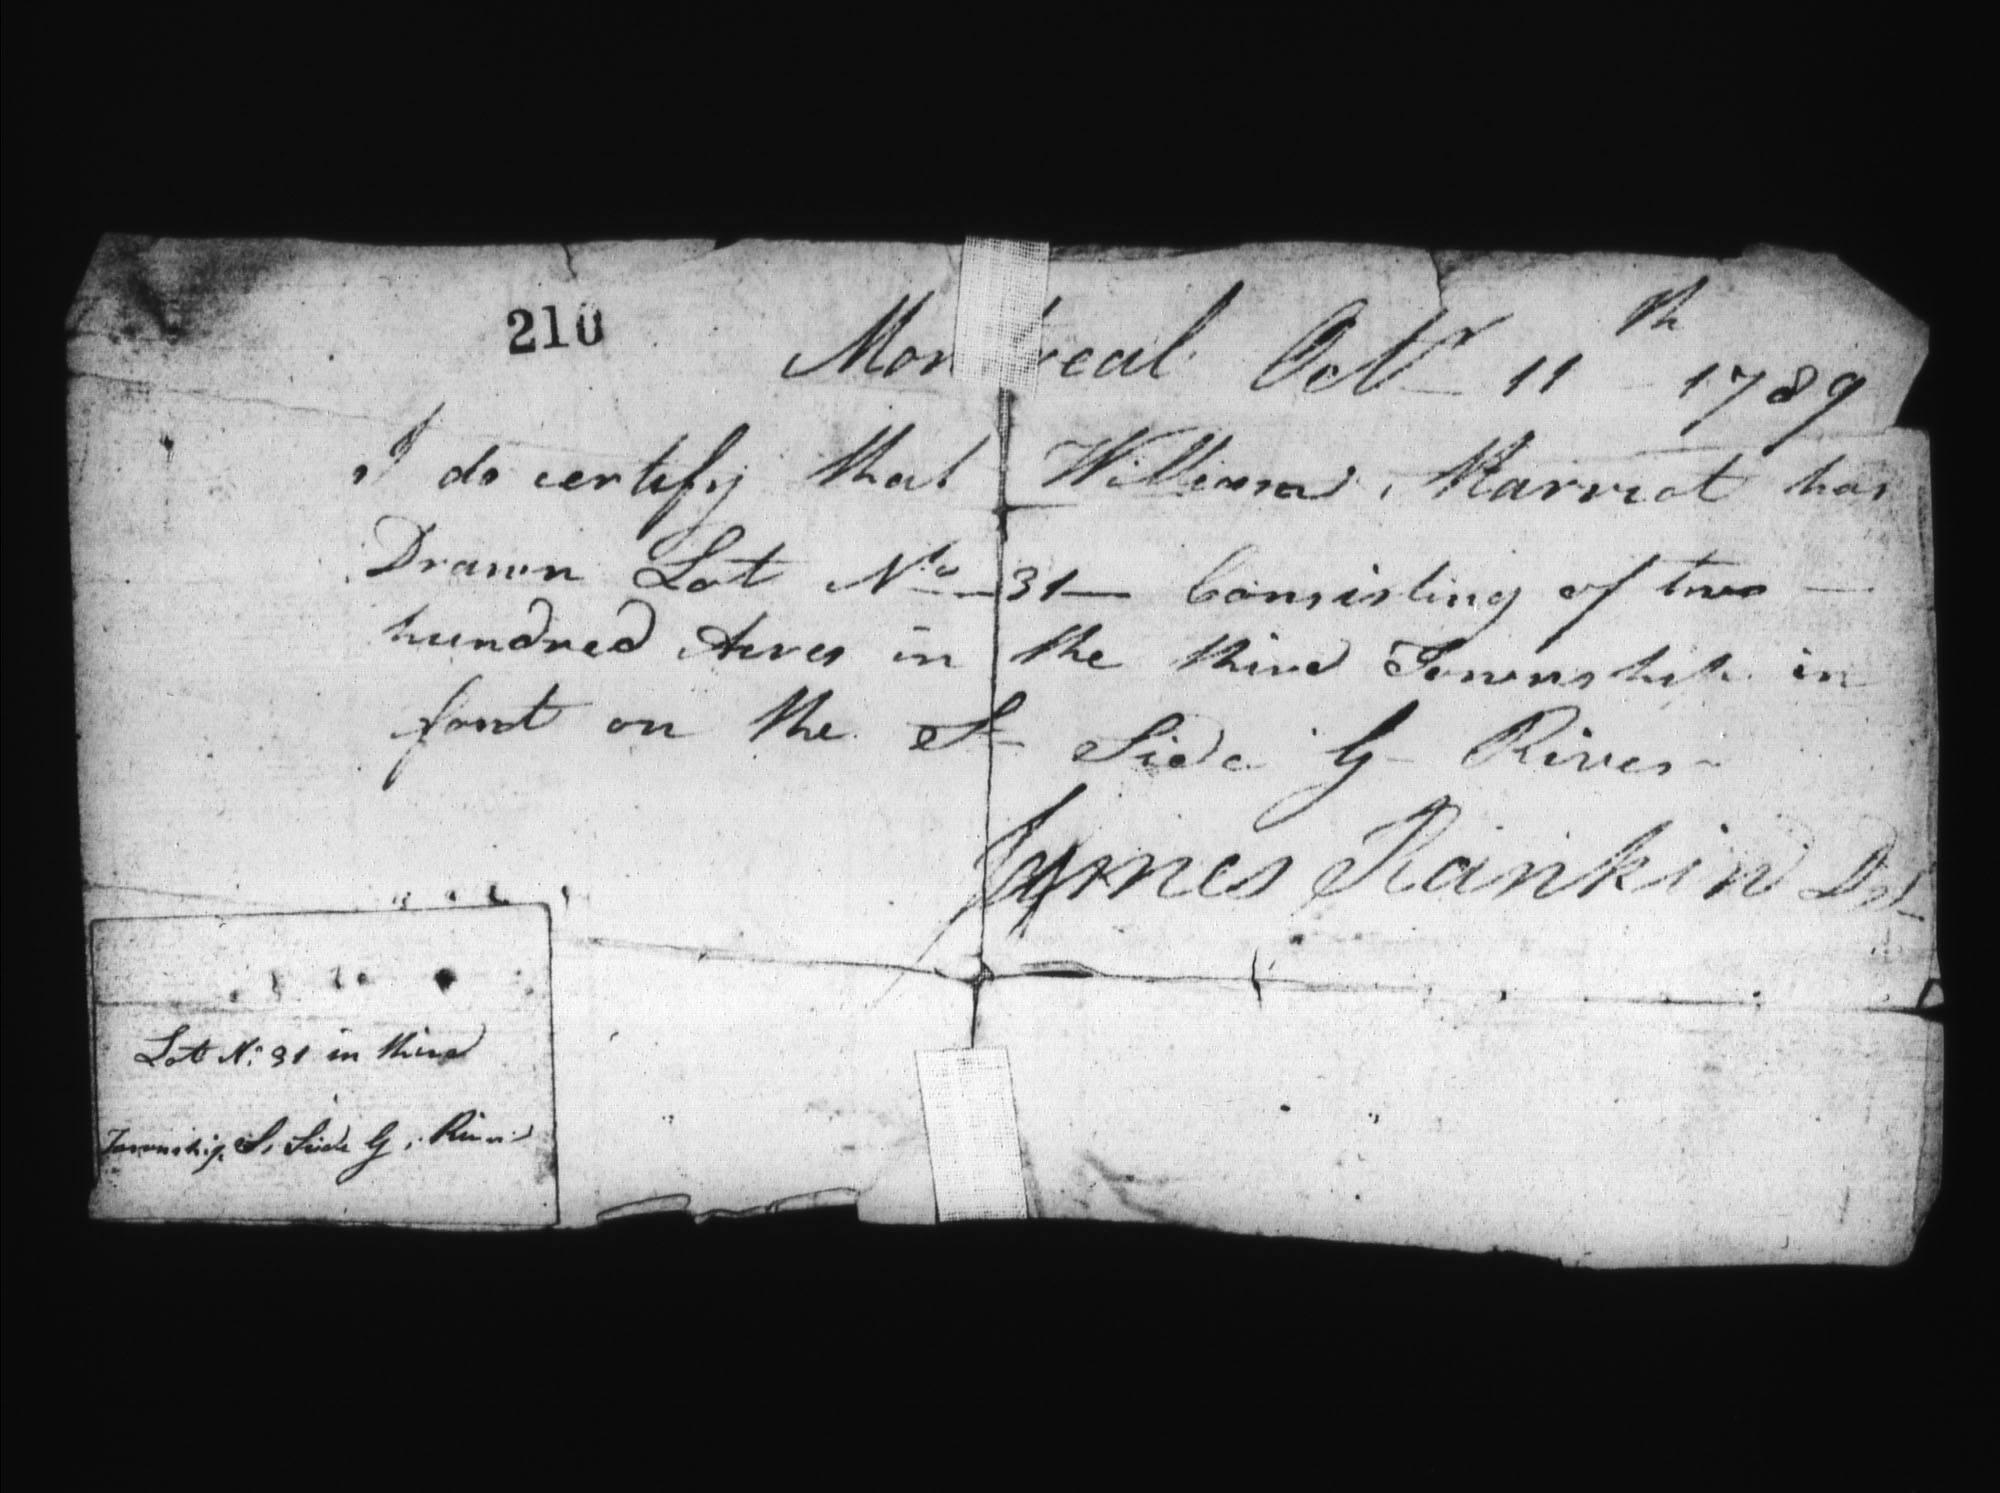 210
Montreal Octr 11th 1789
I do certify that William Marriot has
Drawn Lot No 31 Consisting of two
hundred Acres in the third Township in
font on the S Side G River
James Rankin
Lot No 31 in third
Township S, Side G, River